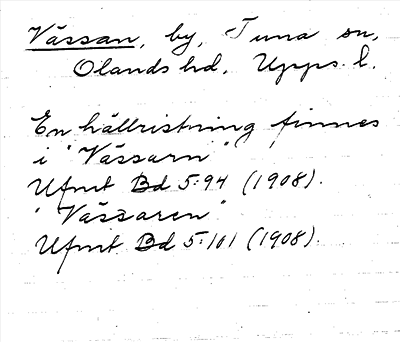 Vässan, by, Tuna sn,
Olands hd, Upps. l.
En hällristning finnes
i "Vässarn"
Ufmt Bd 5:94 (1908).
"Vässaren"
Ufmt Bd 5:101 (1908).